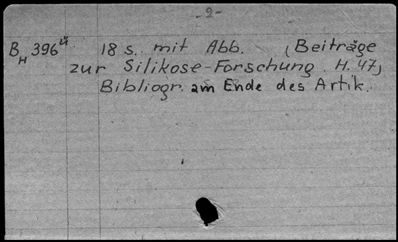 -2-
B H 396 ü 18 s. mit Abb. (Beiträge
zur Silikose-Forschung. H. 47)
Bibliogr. am Ende des Artik.